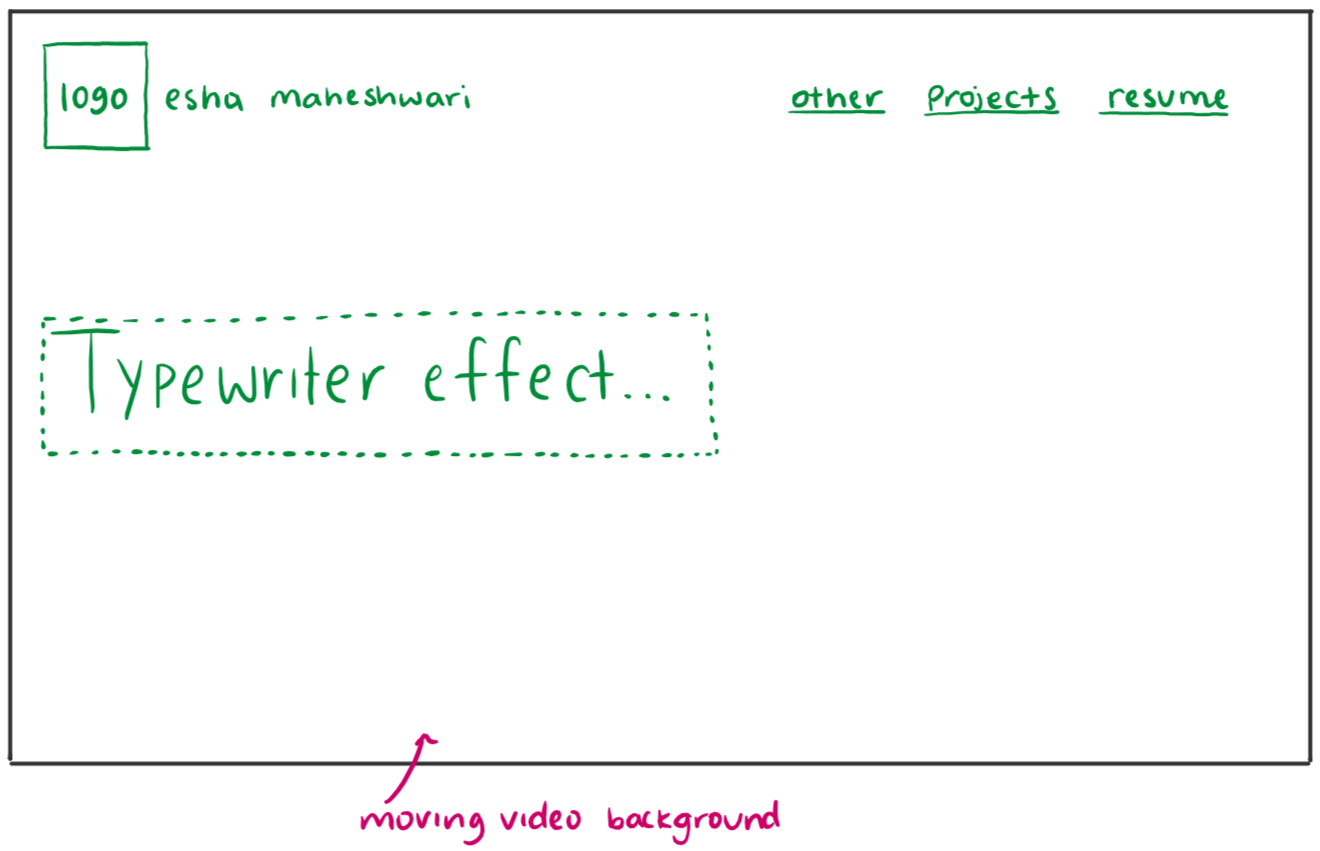 logo esha maheshwari other Projects resume
Typewriter effect...
moving video background